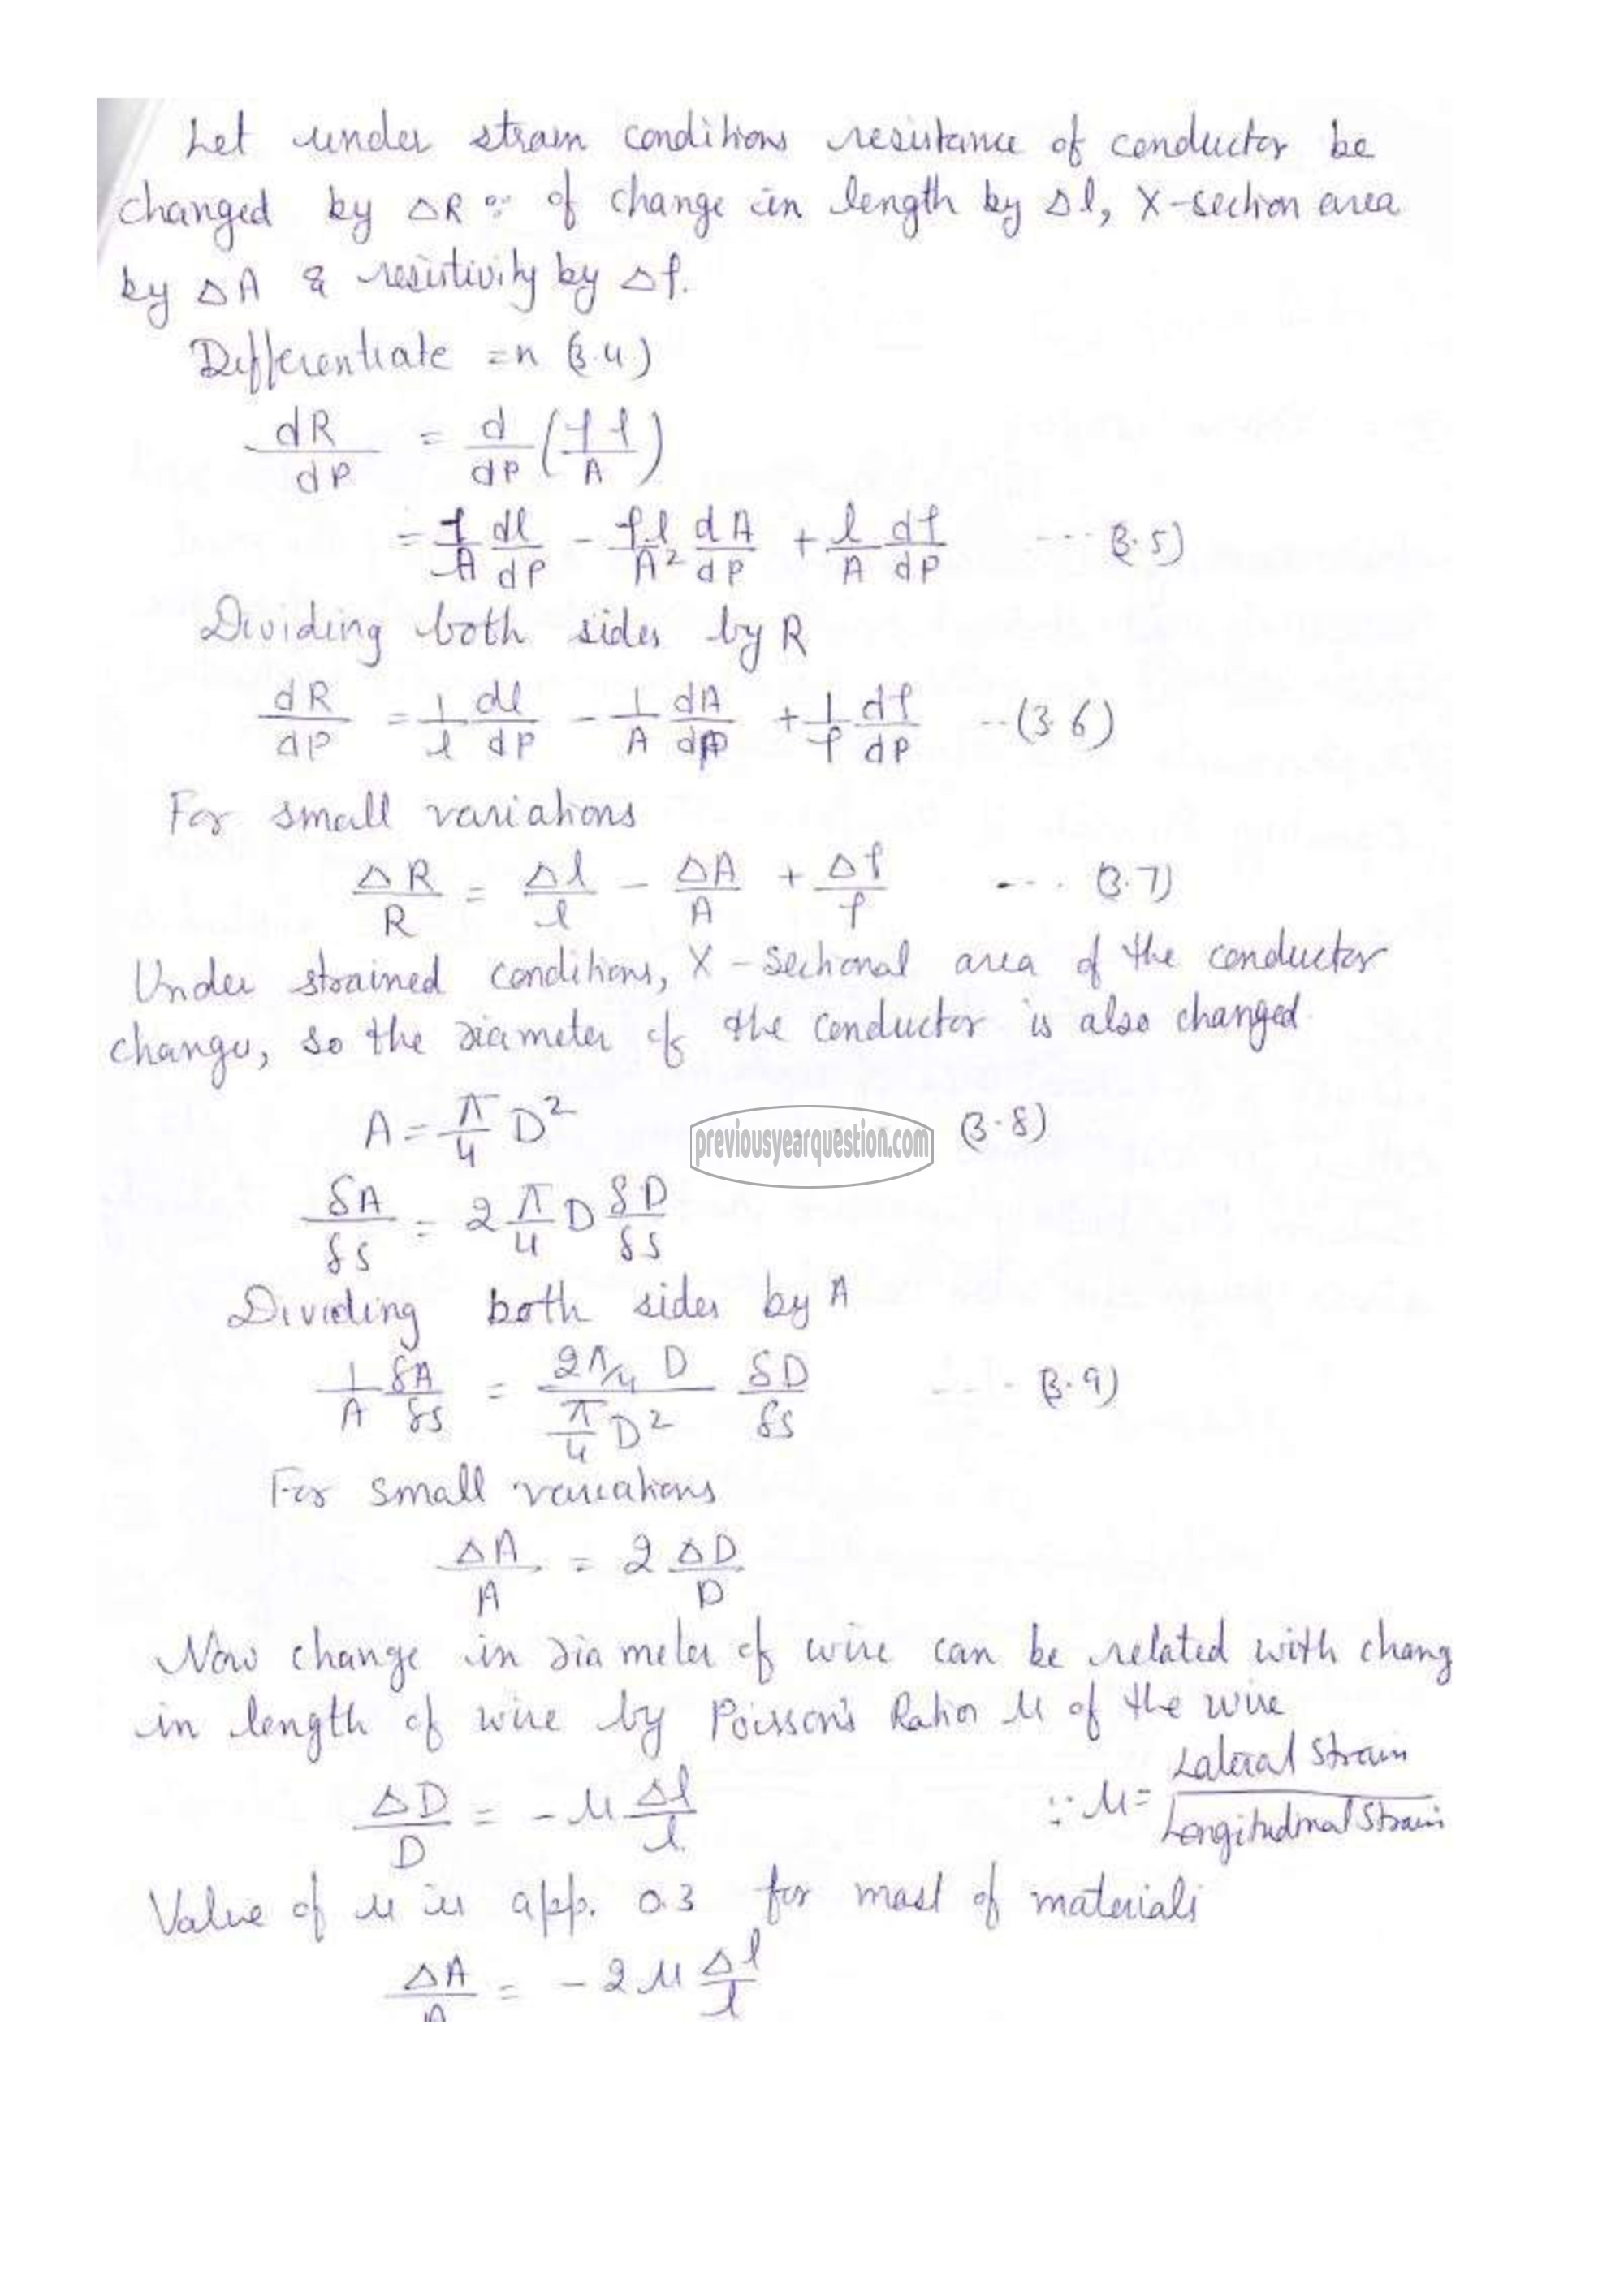 Let under strain conditions resistance of conductor be
changed by ΔR ∵ of change in length by Δl, X-section area
by ΔA & resistivity by Δρ.
Differentiate =n (3.4)
dR/dP = d/dP (ρl/A)
= ρ/A dl/dP - ρl/A² dA/dP + l/A dρ/dP --- (3.5)
Dividing both sides by R
dR/dP = 1/l dl/dP - 1/A dA/dP + 1/ρ dρ/dP -- (3.6)
For small variations
ΔR/R = Δl/l - ΔA/A + Δρ/ρ --- (3.7)
Under strained conditions, X-Sectional area of the conductor
changes, so the diameter of the conductor is also changed.
A = π/4 D² (3.8)
previousyearquestion.com
δA/δs = 2 π/4 D δD/δs
Dividing both sides by A
1/A δA/δs = (2π/4 D)/(π/4 D²) δD/δs --- (3.9)
For small variations
ΔA/A = 2 ΔD/D
Now change in diameter of wire can be related with chang
in length of wire by Poisson's Ratio μ of the wire
ΔD/D = -μ Δl/l ∵ μ = Lateral Strain/Longitudinal Strain
Value of μ is app. 0.3 for most of materials
ΔA/A = -2μ Δl/l